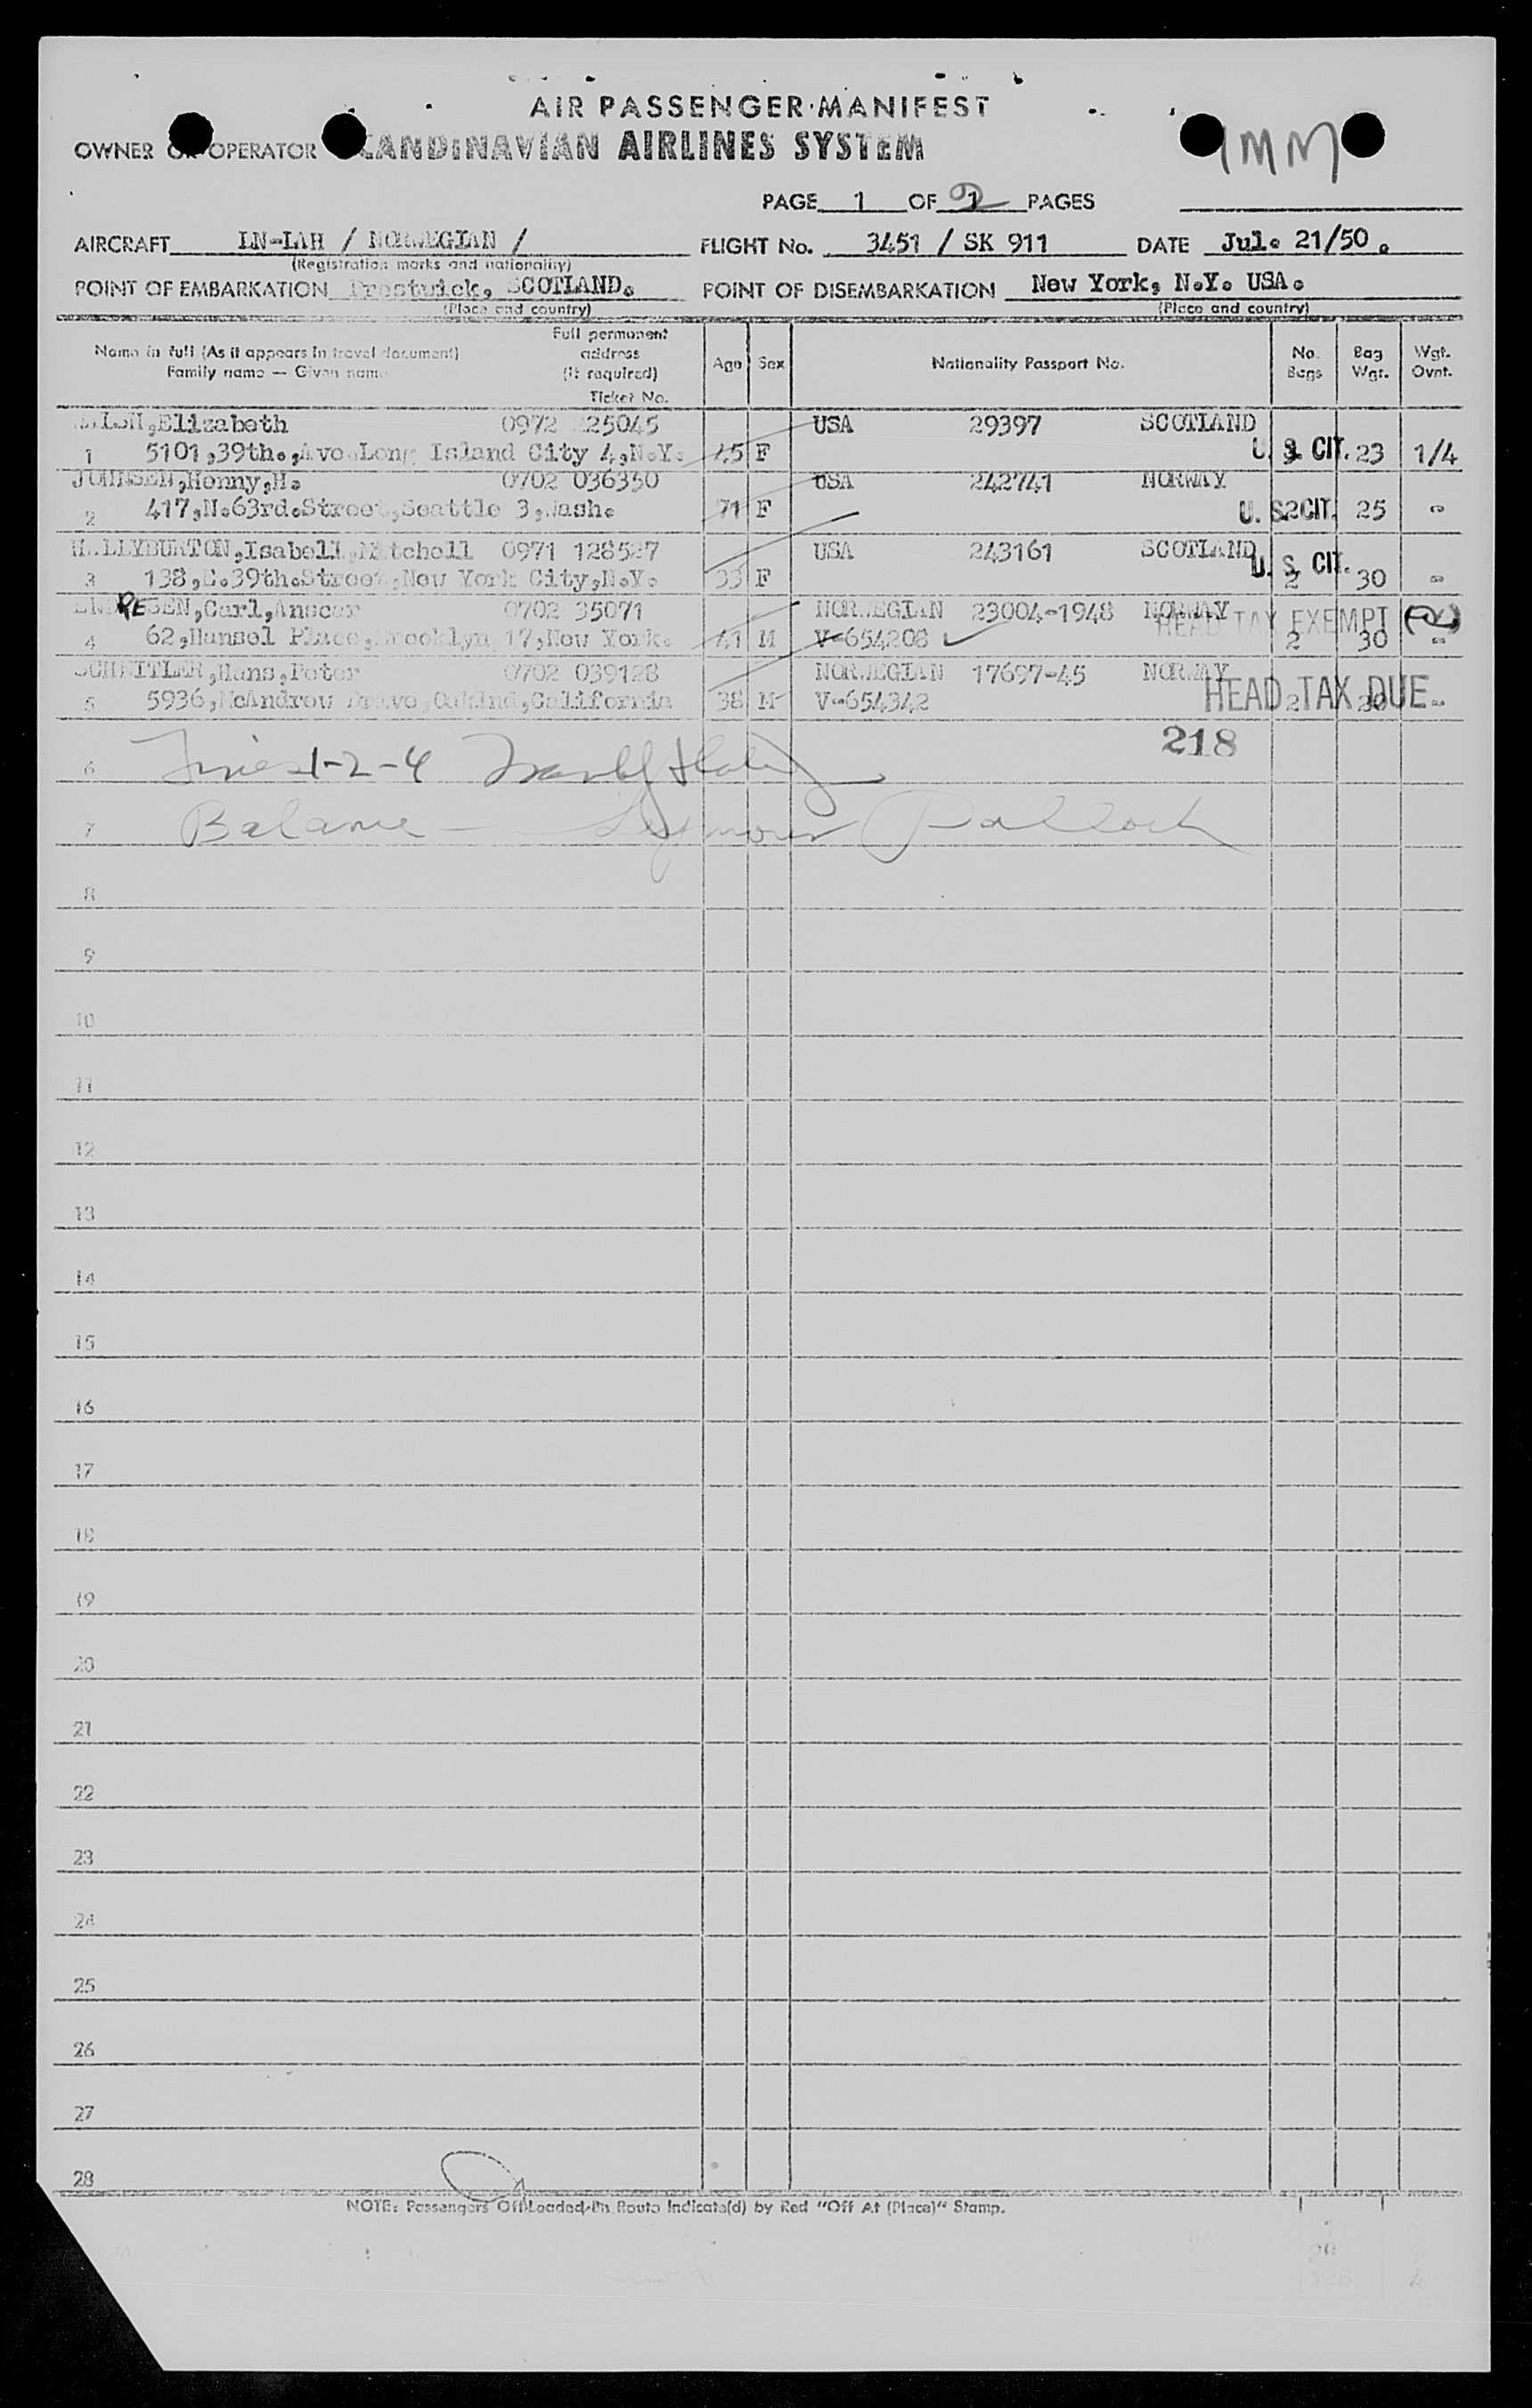 AIR PASSENGER MANIFEST
OWNER OR OPERATOR SCANDINAVIAN AIRLINES SYSTEM
1MM
PAGE 1 OF 2 PAGES
AIRCRAFT LN-LAH / NORWEGIAN / FLIGHT No. 3451 / SK 911 DATE Jul. 21/50.
(Registration marks and nationality)
POINT OF EMBARKATION Prestwick, SCOTLAND. POINT OF DISEMBARKATION New York, N.Y. USA.
(Place and country) (Place and country)
Name in full (As it appears in travel document) Family name — Given name Full permanent address (if required) Ticket No. Age Sex Nationality Passport No. No. Bags Bag Wgt. Wgt. Ovnt.
,Elizabeth 0972 25045 USA 29397 SCOTLAND
1 5101,39th.,Ave.Long Island City 4,N.Y. 45 F U. S. CIT. 23 1/4
JOHNSEN,Henny,H. 0702 036350 USA 242741 NORWAY
2 417,N.63rd.Street,Seattle 3,Wash. 71 F U. S. CIT. 2 25 -
HALLYBURTON,Isabell,Mitchell 0971 128527 USA 243161 SCOTLAND
3 138,E.39th.Street,New York City,N.Y. 33 F U. S. CIT. 2 30 -
RE SEN,Carl,Anscar 0702 35071 NORWEGIAN 23004-1948 NORWAY
4 62,Hansel Place,Brooklyn 17,New York. 41 M V-654208 HEAD TAX EXEMPT 2 30 -
SCHEITLER,Hans,Peter 0702 039128 NORWEGIAN 17697-45 NORWAY
5 5936,McAndrew Drive,Oakland,California 38 M V-654342 HEAD TAX DUE 2 -
218
6 Lines 1-2-4
7 Balance - Seymour Pollock
8
9
10
11
12
13
14
15
16
17
18
19
20
21
22
23
24
25
26
27
28
NOTE: Passengers Off Loaded En Route Indicate(d) by Red "Off At (Place)" Stamp.